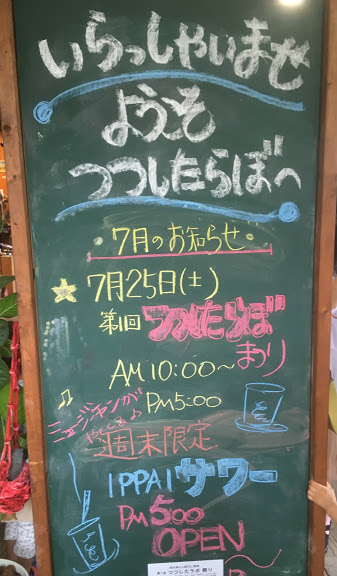 いらっしゃいませ
ようこそ
つつしたらぼへ
・7月のお知らせ・
7月25日(土)
第1回 つつしたらぼ
まつり
AM10:00〜
PM5:00
♫ ミュージシャンが
やってくる♪
週末限定
IPPAIサワー
PM5:00
OPEN
つつじたラボ 祭り